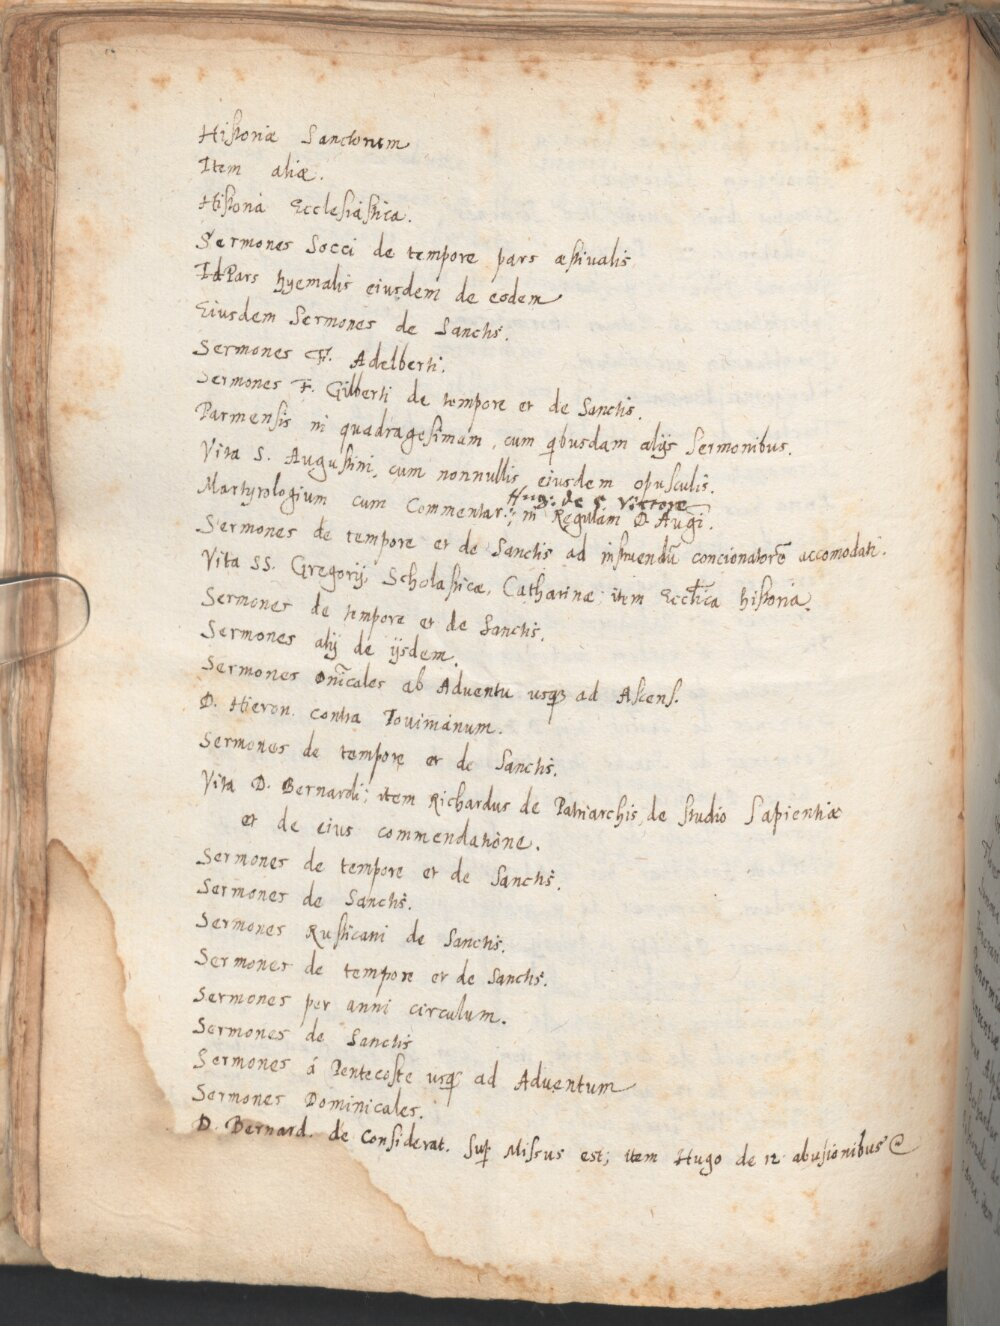 Historiæ Sanctorum
Item aliæ.
Historia Ecclesiastica.
Sermones Socci de tempore pars æstivalis
Pars hyemalis eiusdem de eodem
Eiusdem Sermones de Sanctis.
Sermones F. Adelberti.
Sermones F. Gilberti de tempore et de Sanctis.
Parmensis in quadragesimam, cum qbusdam alijs Sermonibus.
Vita S. Augustini, cum nonnullis eiusdem opusculis.
Hug: de S. Victore
Martyrologium cum Commentar: in Regulam D. Augi.
Sermones de tempore et de Sanctis ad instruendū concionatorē accomodati.
Vita SS. Gregorij, Scholasticæ, Catharinæ; item Eccl̄ica historia.
Sermones de tempore et de Sanctis.
Sermones alij de ijsdem.
Sermones Dn̄icales ab Adventu usq ad Ascens.
D. Hieron. contra Iovinianum.
Sermones de tempore et de Sanctis.
Vita D. Bernardi; item Richardus de Patriarchis, de studio Sapientiæ
et de eius commendatione.
Sermones de tempore et de Sanctis.
Sermones de Sanctis.
Sermones Rusticani de Sanctis.
Sermones de tempore et de Sanctis.
Sermones per anni circulum.
Sermones de Sanctis
Sermones á Pentecoste usq ad Adventum
Sermones Dominicales.
D. Bernard. de Considerat. Sup Missus est; item Hugo de 12 abusionibus